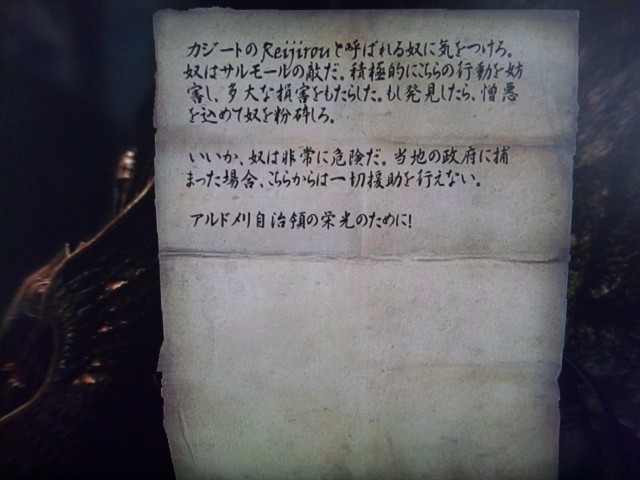 カジートのReijirouと呼ばれる奴に気をつけろ。
奴はサルモールの敵だ。積極的にこちらの行動を妨
害し、多大な損害をもたらした。もし発見したら、憎悪
を込めて奴を粉砕しろ。
いいか、奴は非常に危険だ。当地の政府に捕
まった場合、こちらからは一切援助を行えない。
アルドメリ自治領の栄光のために!